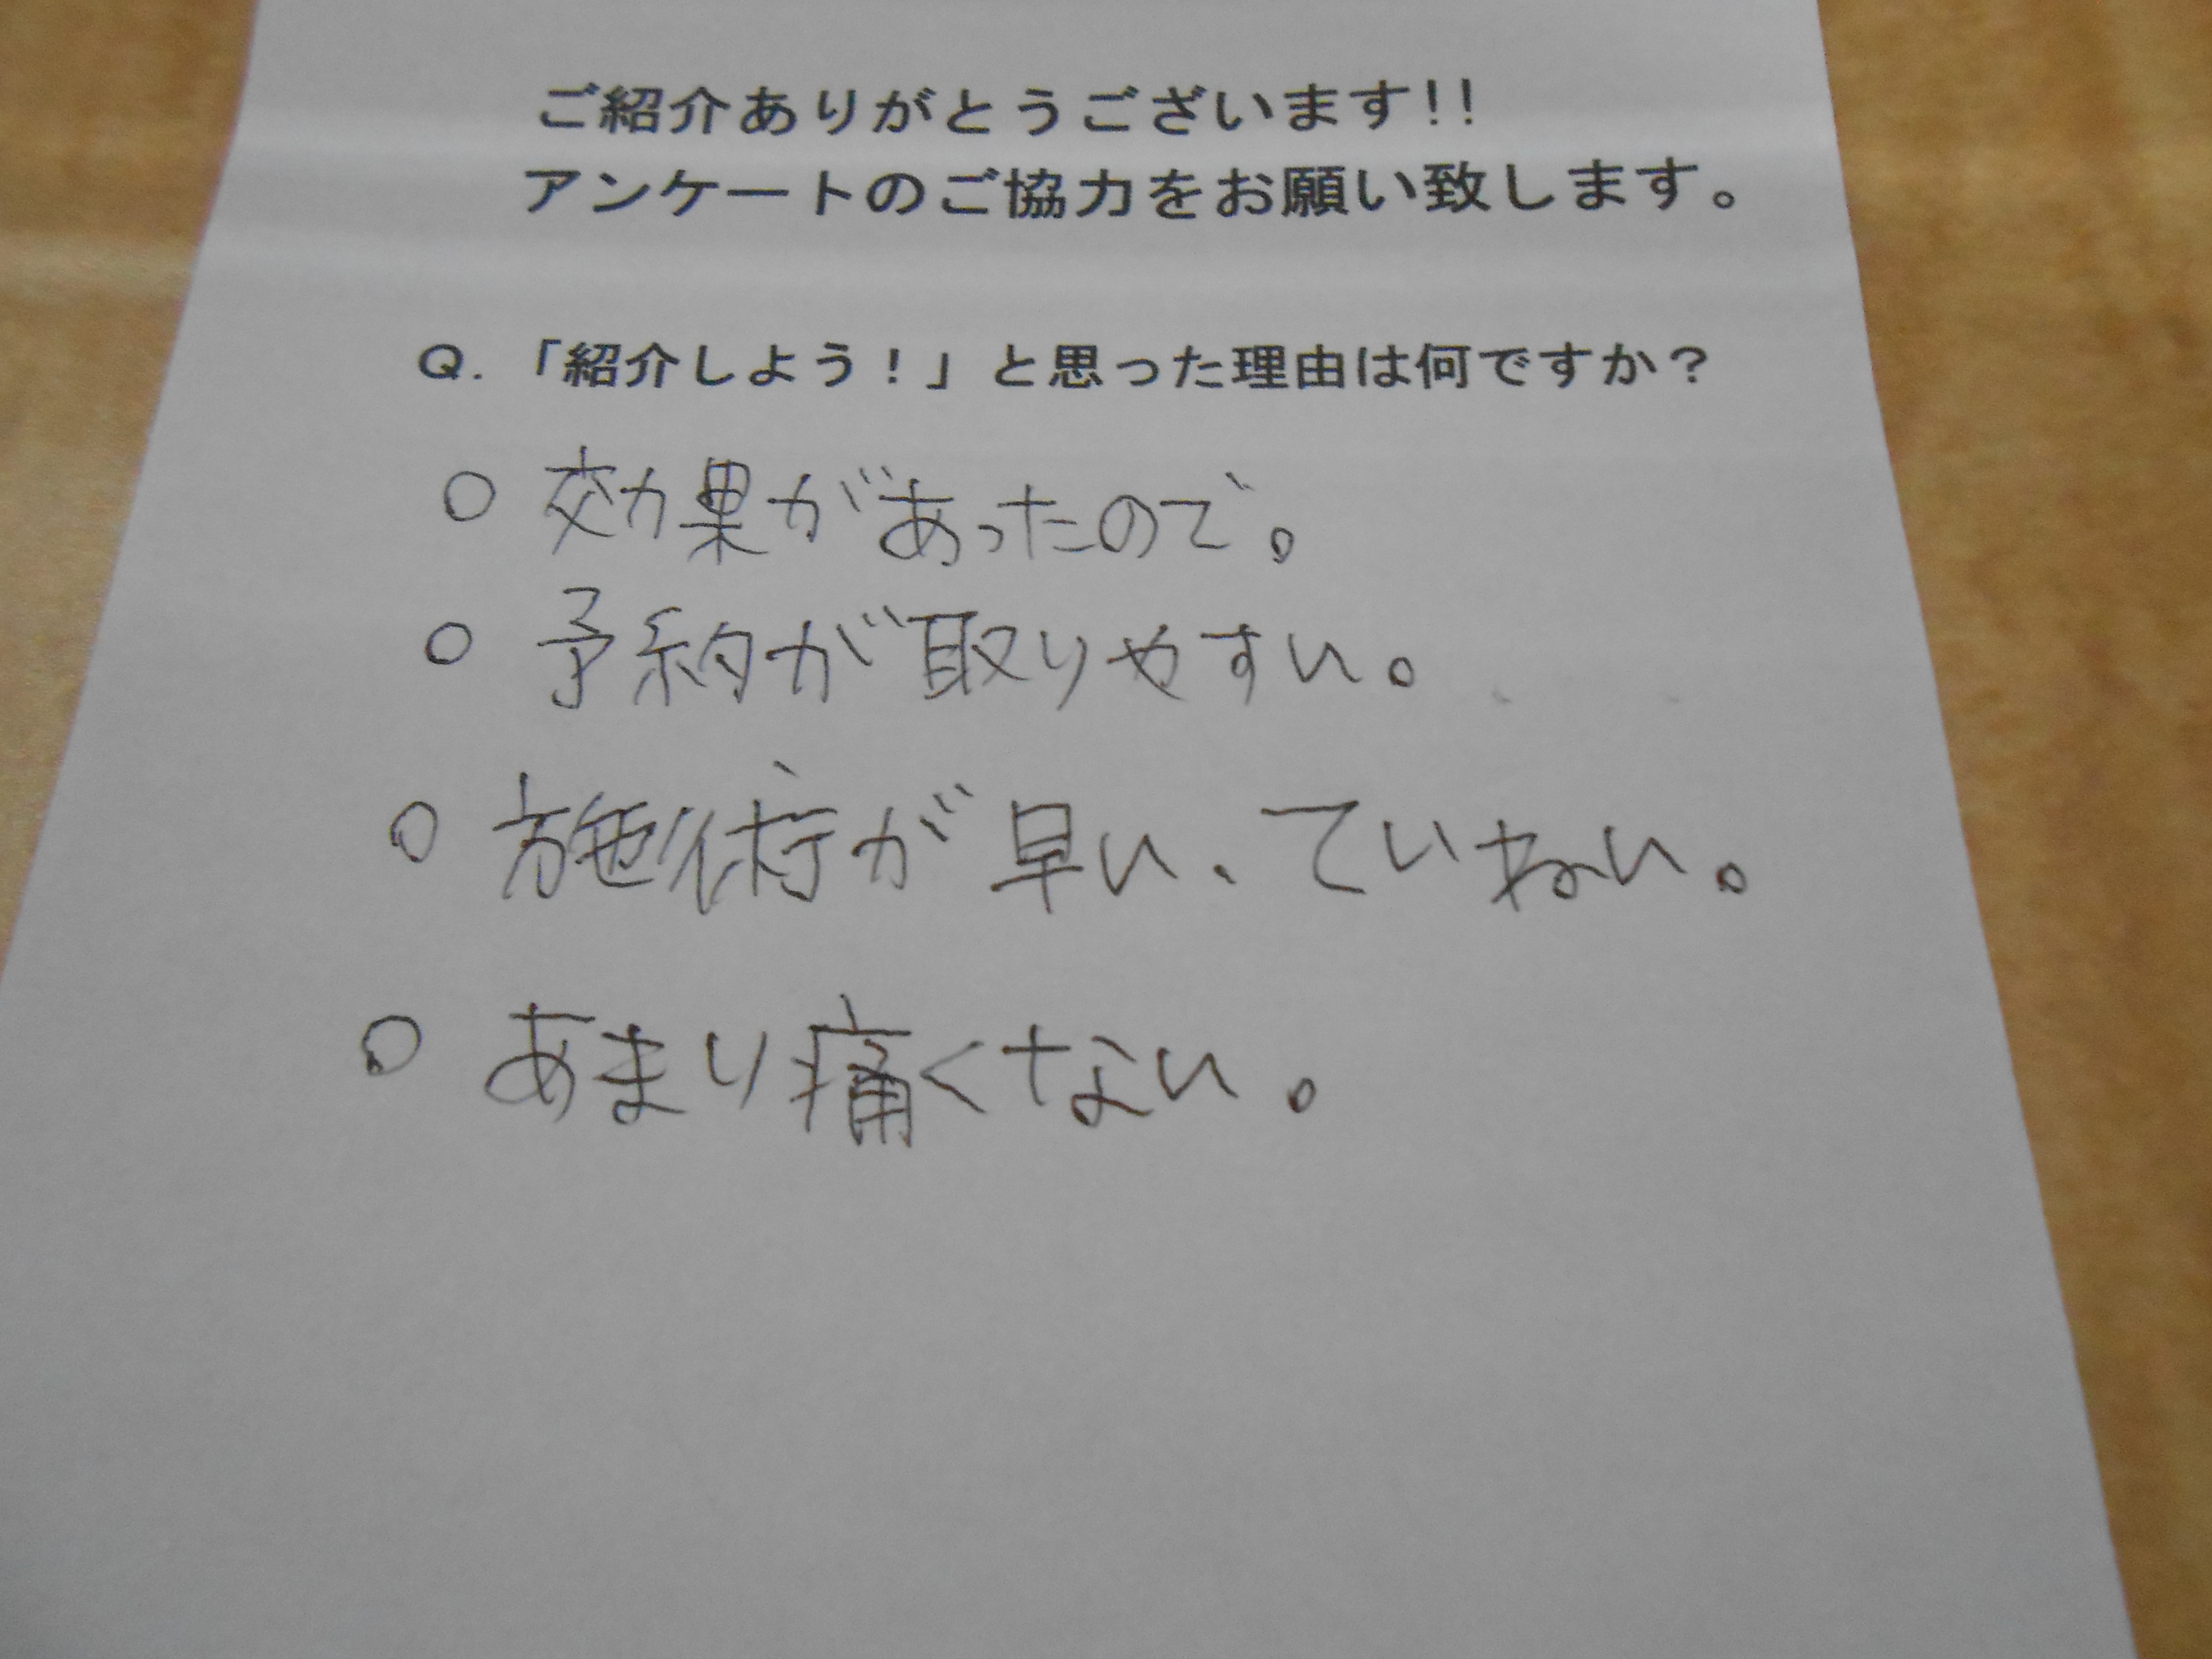 ご紹介ありがとうございます!!
アンケートのご協力をお願い致します。
Q.「紹介しよう！」と思った理由は何ですか？
○ 効果があったので。
○ 予約が取りやすい。
○ 施術が早い、ていねい。
○ あまり痛くない。